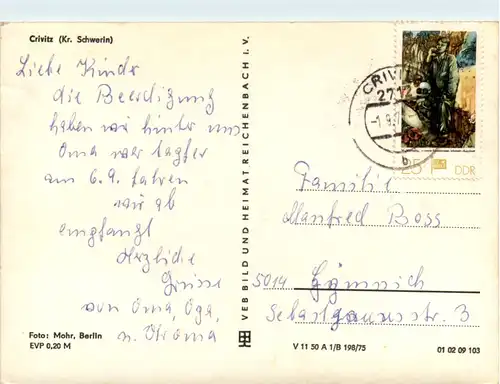 Crivitz (Kr. Schwerin)
Liebe Kinder
die Beerdigung
haben wir hinter uns
Oma war tapfer
am 6.9. fahren
wir ab
empfangt
Herzliche
Grüsse
von Oma, Opa,
u. Uroma
Foto: Mohr, Berlin
EVP 0,20 M
VEB BILD UND HEIMAT REICHENBACH I. V.
CRIVITZ
2712
-1.9.
b
25
DDR
Familie
Manfred Boss
5014 Gymnich
Sebastianusstr. 3
V 11 50 A 1/B 198/75
01 02 09 103